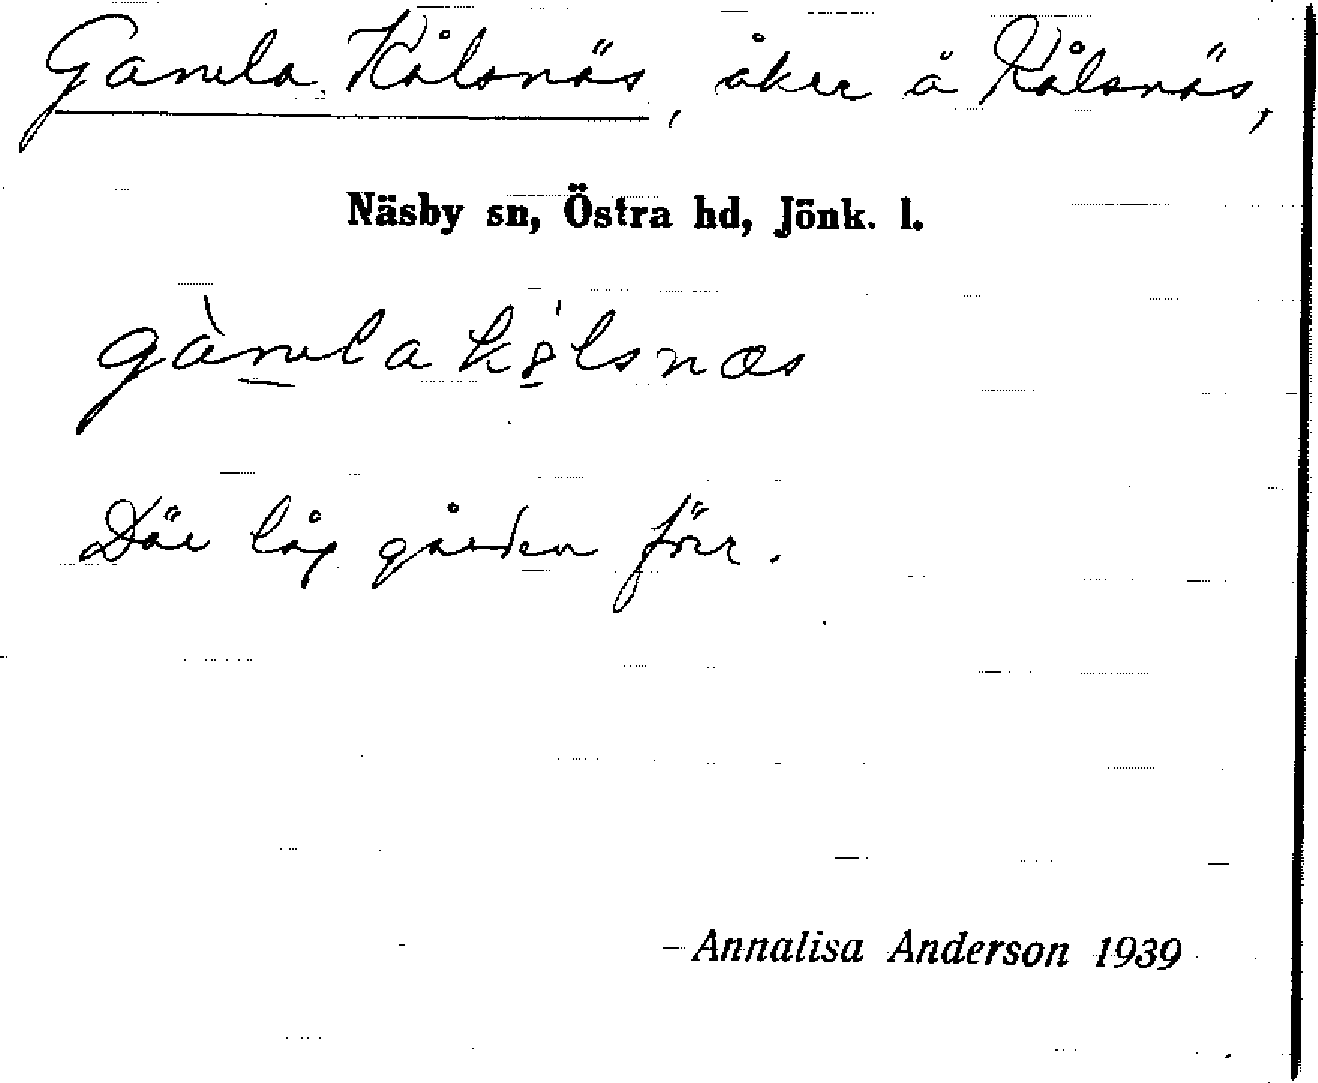 Gamla Kålsnäs, åker å Kålsnäs,
Näsby sn, Östra hd, Jönk. l.
gàmla kó̱lsnæs
Där låg gården förr.
Annalisa Anderson 1939